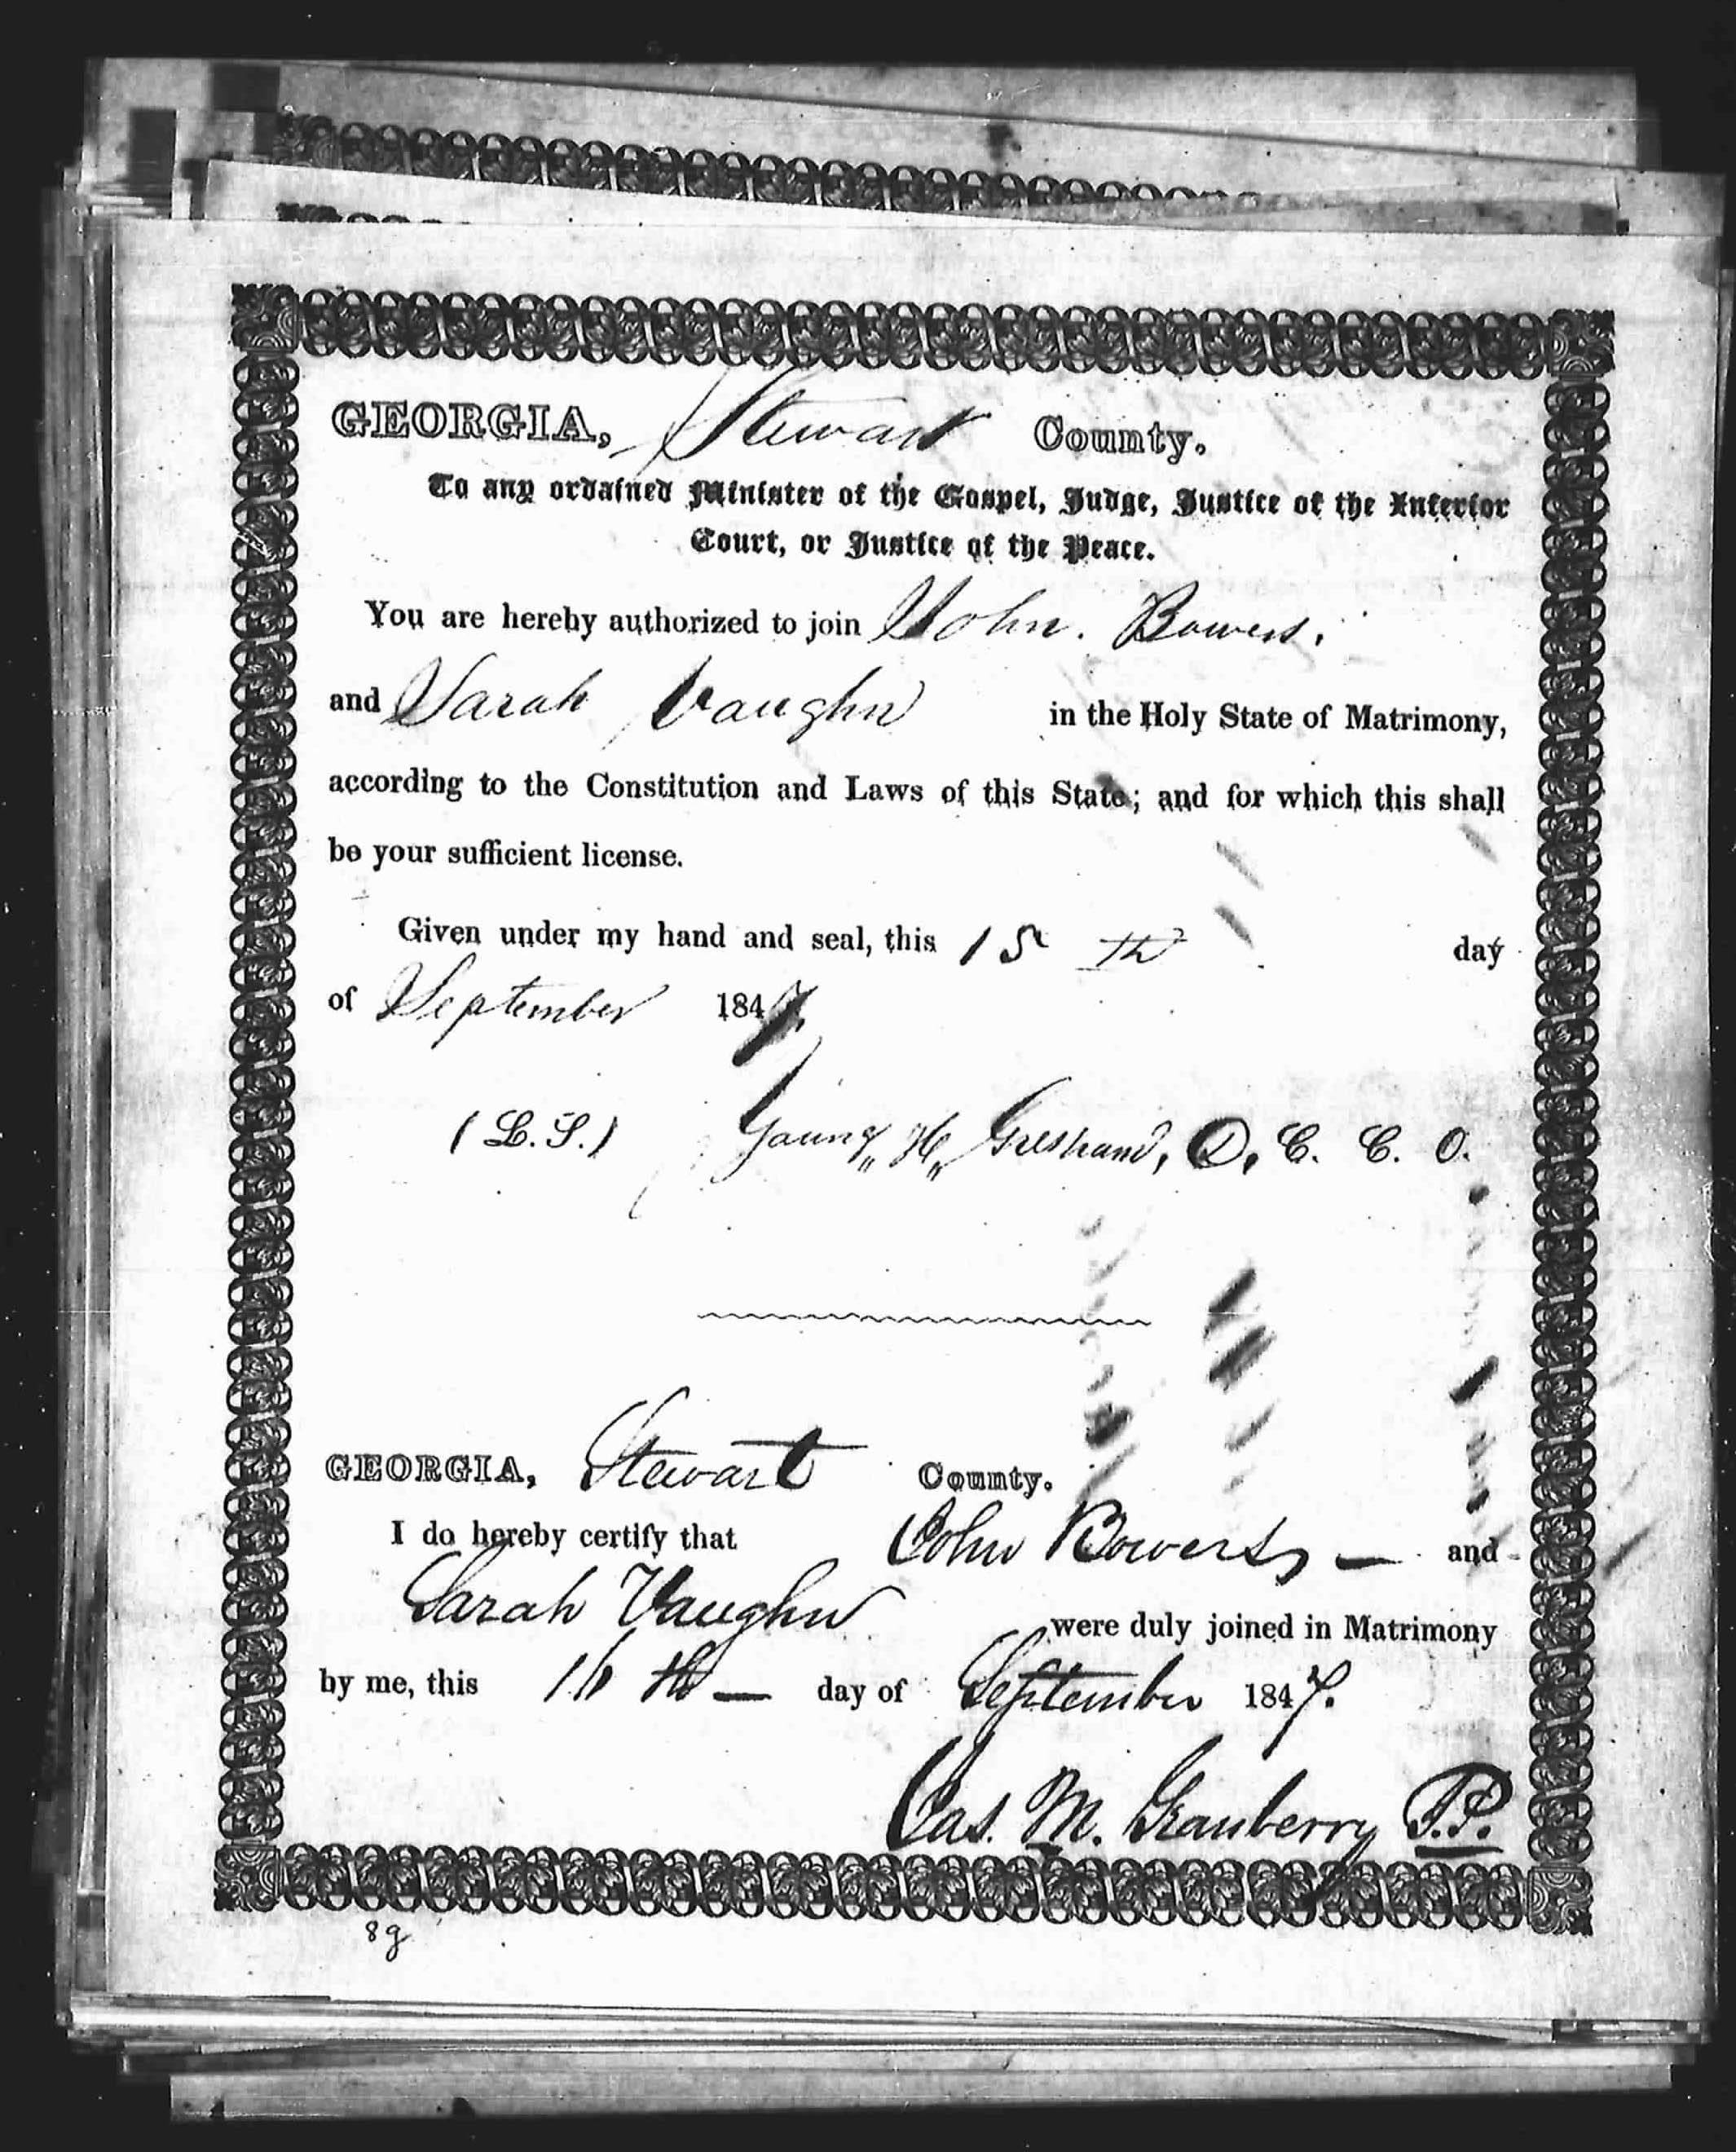 GEORGIA, Stewart County.
To any ordained Minister of the Gospel, Judge, Justice of the Inferior
Court, or Justice of the Peace.
You are hereby authorized to join John. Bowers.
and Sarah Vaughn in the Holy State of Matrimony,
according to the Constitution and Laws of this State; and for which this shall
be your sufficient license.
Given under my hand and seal, this 15 th day
of September 1847.
(L.S.) Young H, D, C. C. O.
GEORGIA, Stewart County.
I do hereby certify that John Bowers, — and
Sarah Vaughn were duly joined in Matrimony
by me, this 16 th — day of September 1847.
Jas. M. Granberry J.P.
89